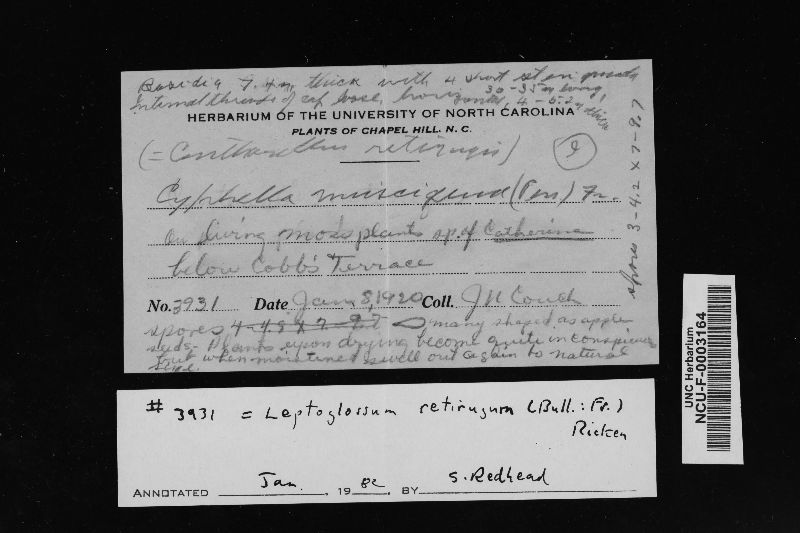 Basidia 7.4µ thick with 4 short set on
Internal threads of cap loose, 30-35µ long,
4-5.2µ thick
HERBARIUM OF THE UNIVERSITY OF NORTH CAROLINA
PLANTS OF CHAPEL HILL, N. C.
(= Cantharellus retirugis)
Cyphella muscigena (Pers) Fr.
on living moss plants sp. of Catherinea
below Cobb's Terrace
No. 3931 Date Jan 8, 1920 Coll. JN Couch
spores 4-4.8 x 7- many shaped as apple
seeds- Plants upon drying become quite inconspicuous
but when moistened swell out again to natural
size.
spores 3-4.2 x 7-9.7
# 3931 = Leptoglossum retirugum (Bull.: Fr.)
Ricken
ANNOTATED Jan. , 19 82 , BY S. Redhead
UNC Herbarium
NCU-F-0003164